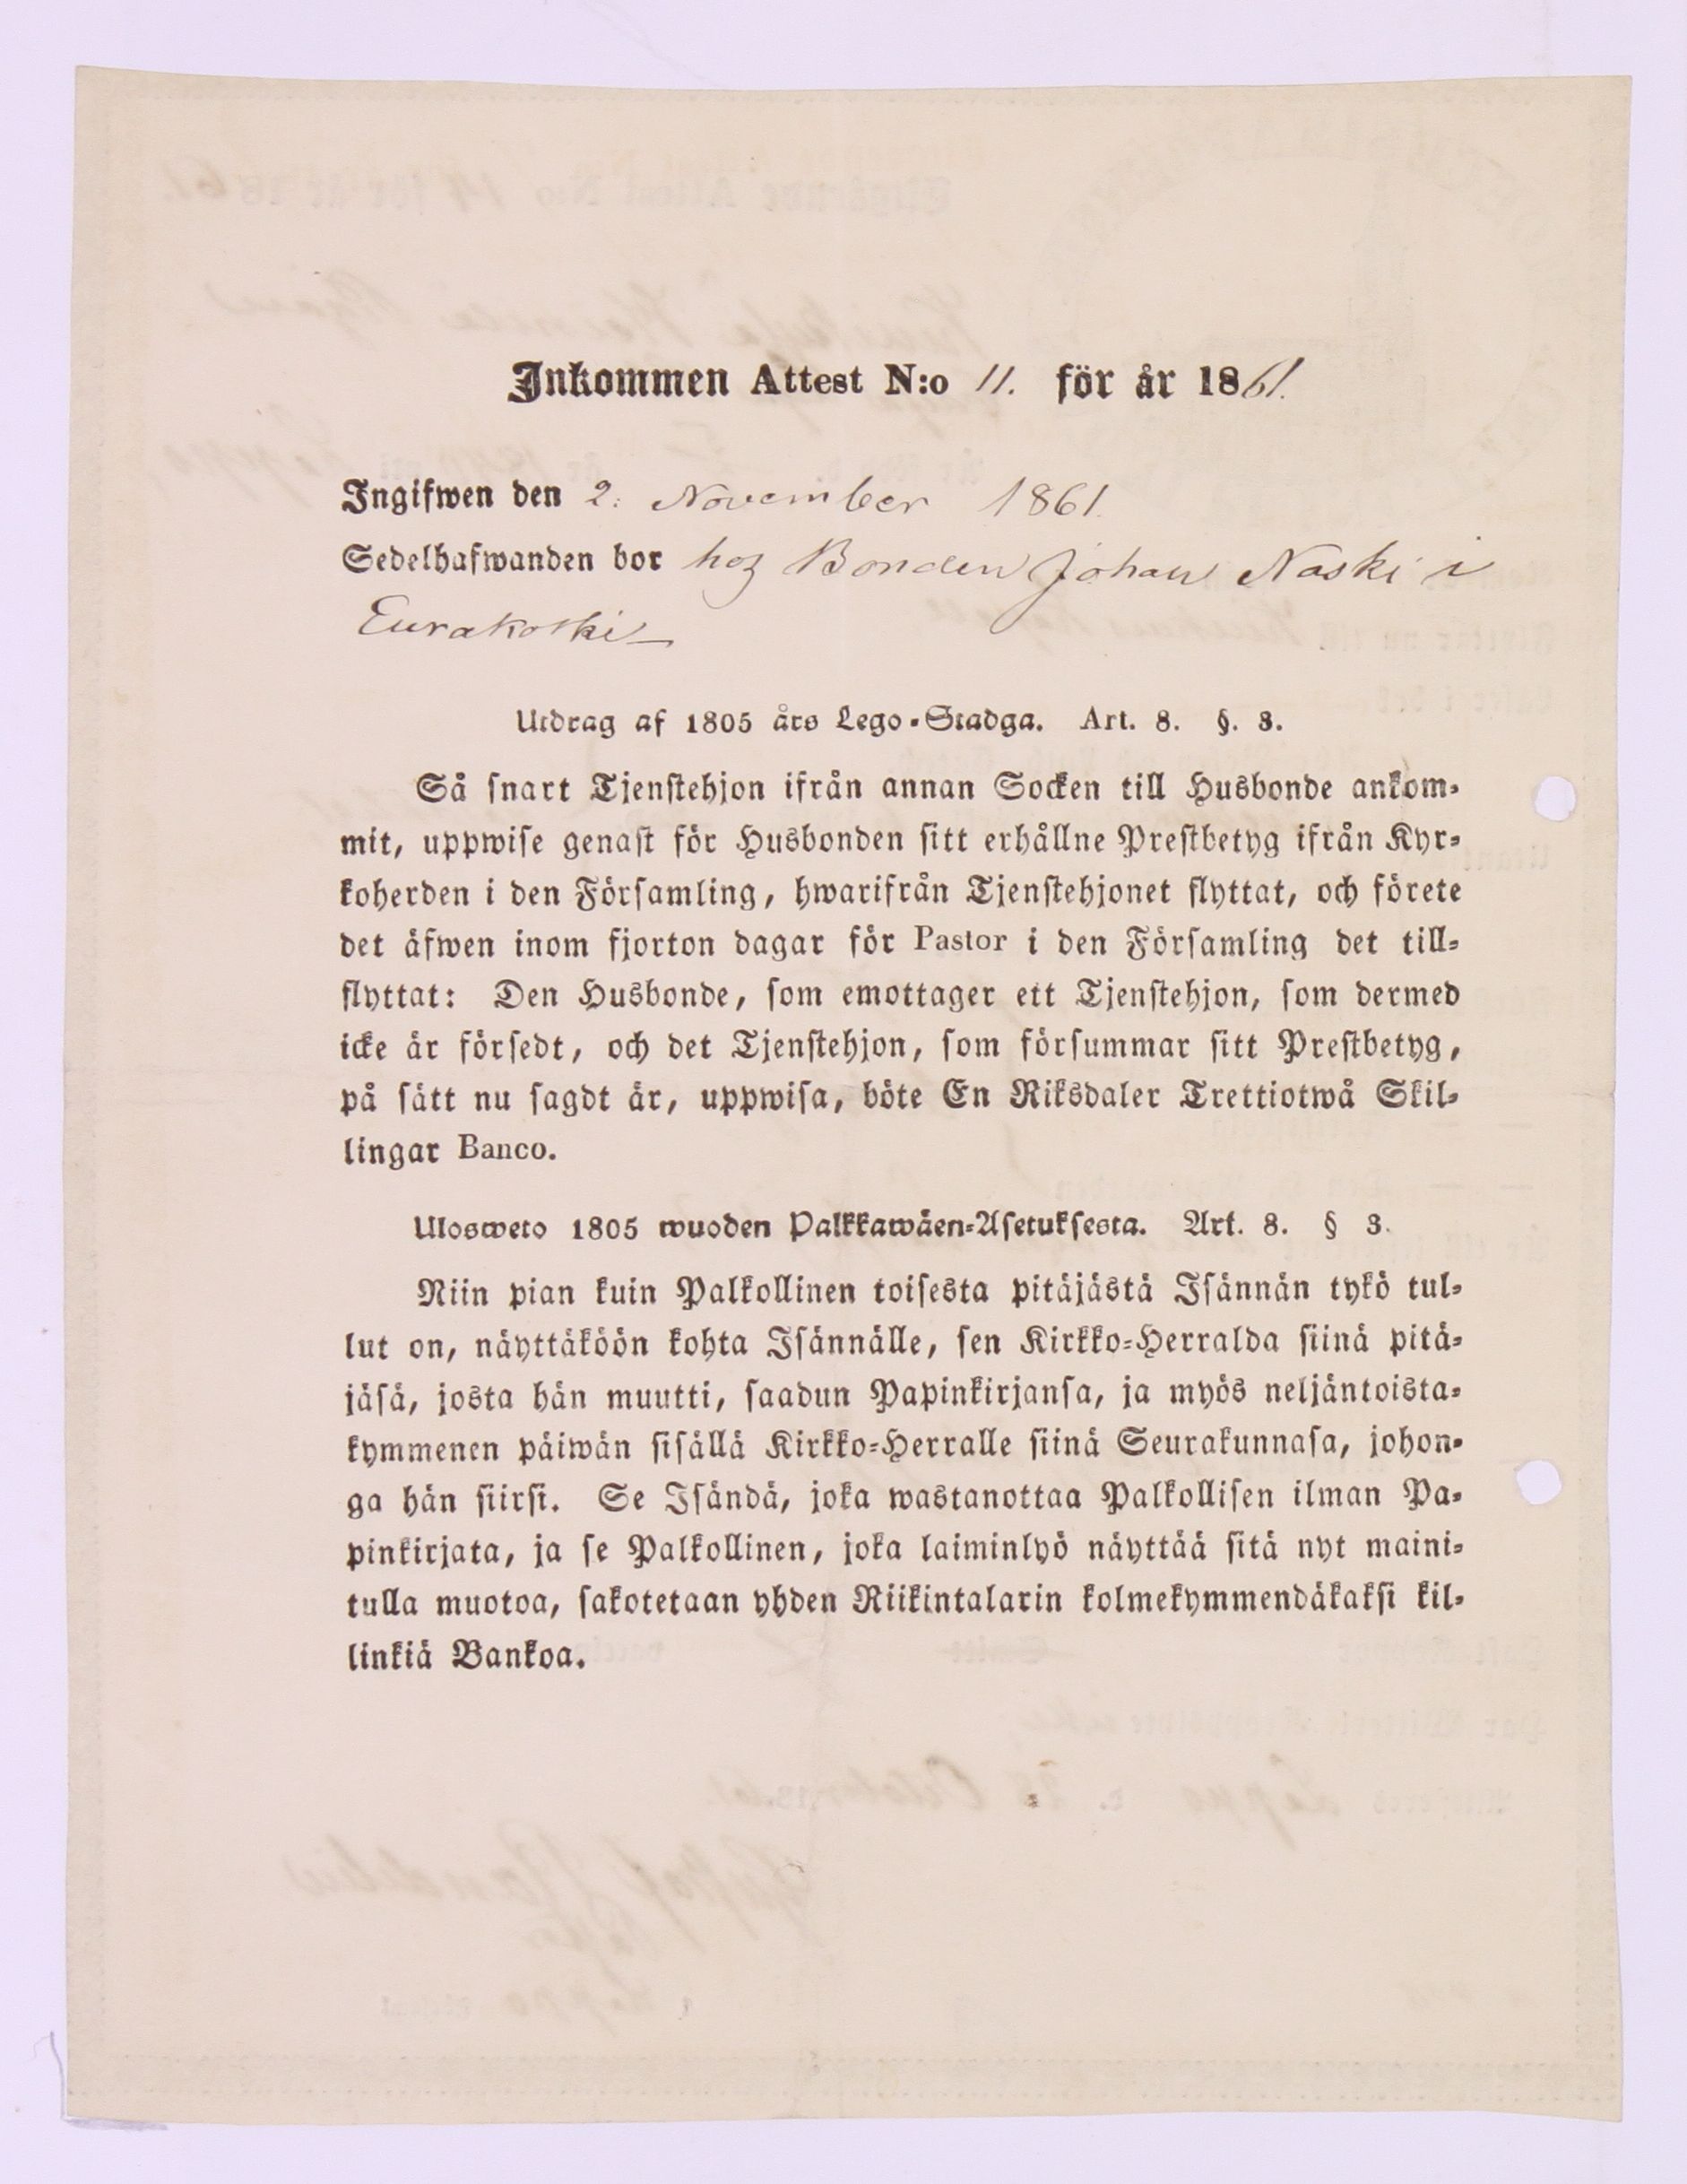 Inkommen Attest N:o 11. för år 1861.
Ingifwen den 2: November 1861.
Sedelhafwanden bor hoz Bonden Johan Naski i
Eurakoski
Utdrag af 1805 års Lego-Stadga. Art. 8. §. 3.
Så snart Tjenstehjon ifrån annan Socken till Husbonde ankom-
mit, uppwise genast för Husbonden sitt erhållne Prestbetyg ifrån Kyr-
koherden i den Församling, hwarifrån Tjenstehjonet flyttat, och förete
det äfwen inom fjorton dagar för Pastor i den Församling det till-
flyttat: Den Husbonde, som emottager ett Tjenstehjon, som dermed
icke är försedt, och det Tjenstehjon, som försummar sitt Prestbetyg,
på sätt nu sagdt är, uppwisa, böte En Riksdaler Trettiotwå Skil-
lingar Banco.
Ulosweto 1805 wuoden Palkkawäen-Asetuksesta. Art. 8. § 3.
Niin pian kuin Palkollinen toisesta pitäjästä Isännän tykö tul-
lut on, näyttäköön kohta Isännälle, sen Kirkko-Herralda siinä pitä-
jäsä, josta hän muutti, saadun Papinkirjansa, ja myös neljäntoista-
kymmenen päiwän sisällä Kirkko-Herralle siinä Seurakunnasa, johon-
ga hän siirsi. Se Isändä, joka wastanottaa Palkollisen ilman Pa-
pinkirjata, ja se Palkollinen, joka laiminlyö näyttää sitä nyt maini-
tulla muotoa, sakotetaan yhden Riikintalarin kolmekymmendäkaksi kil-
linkiä Bankoa.